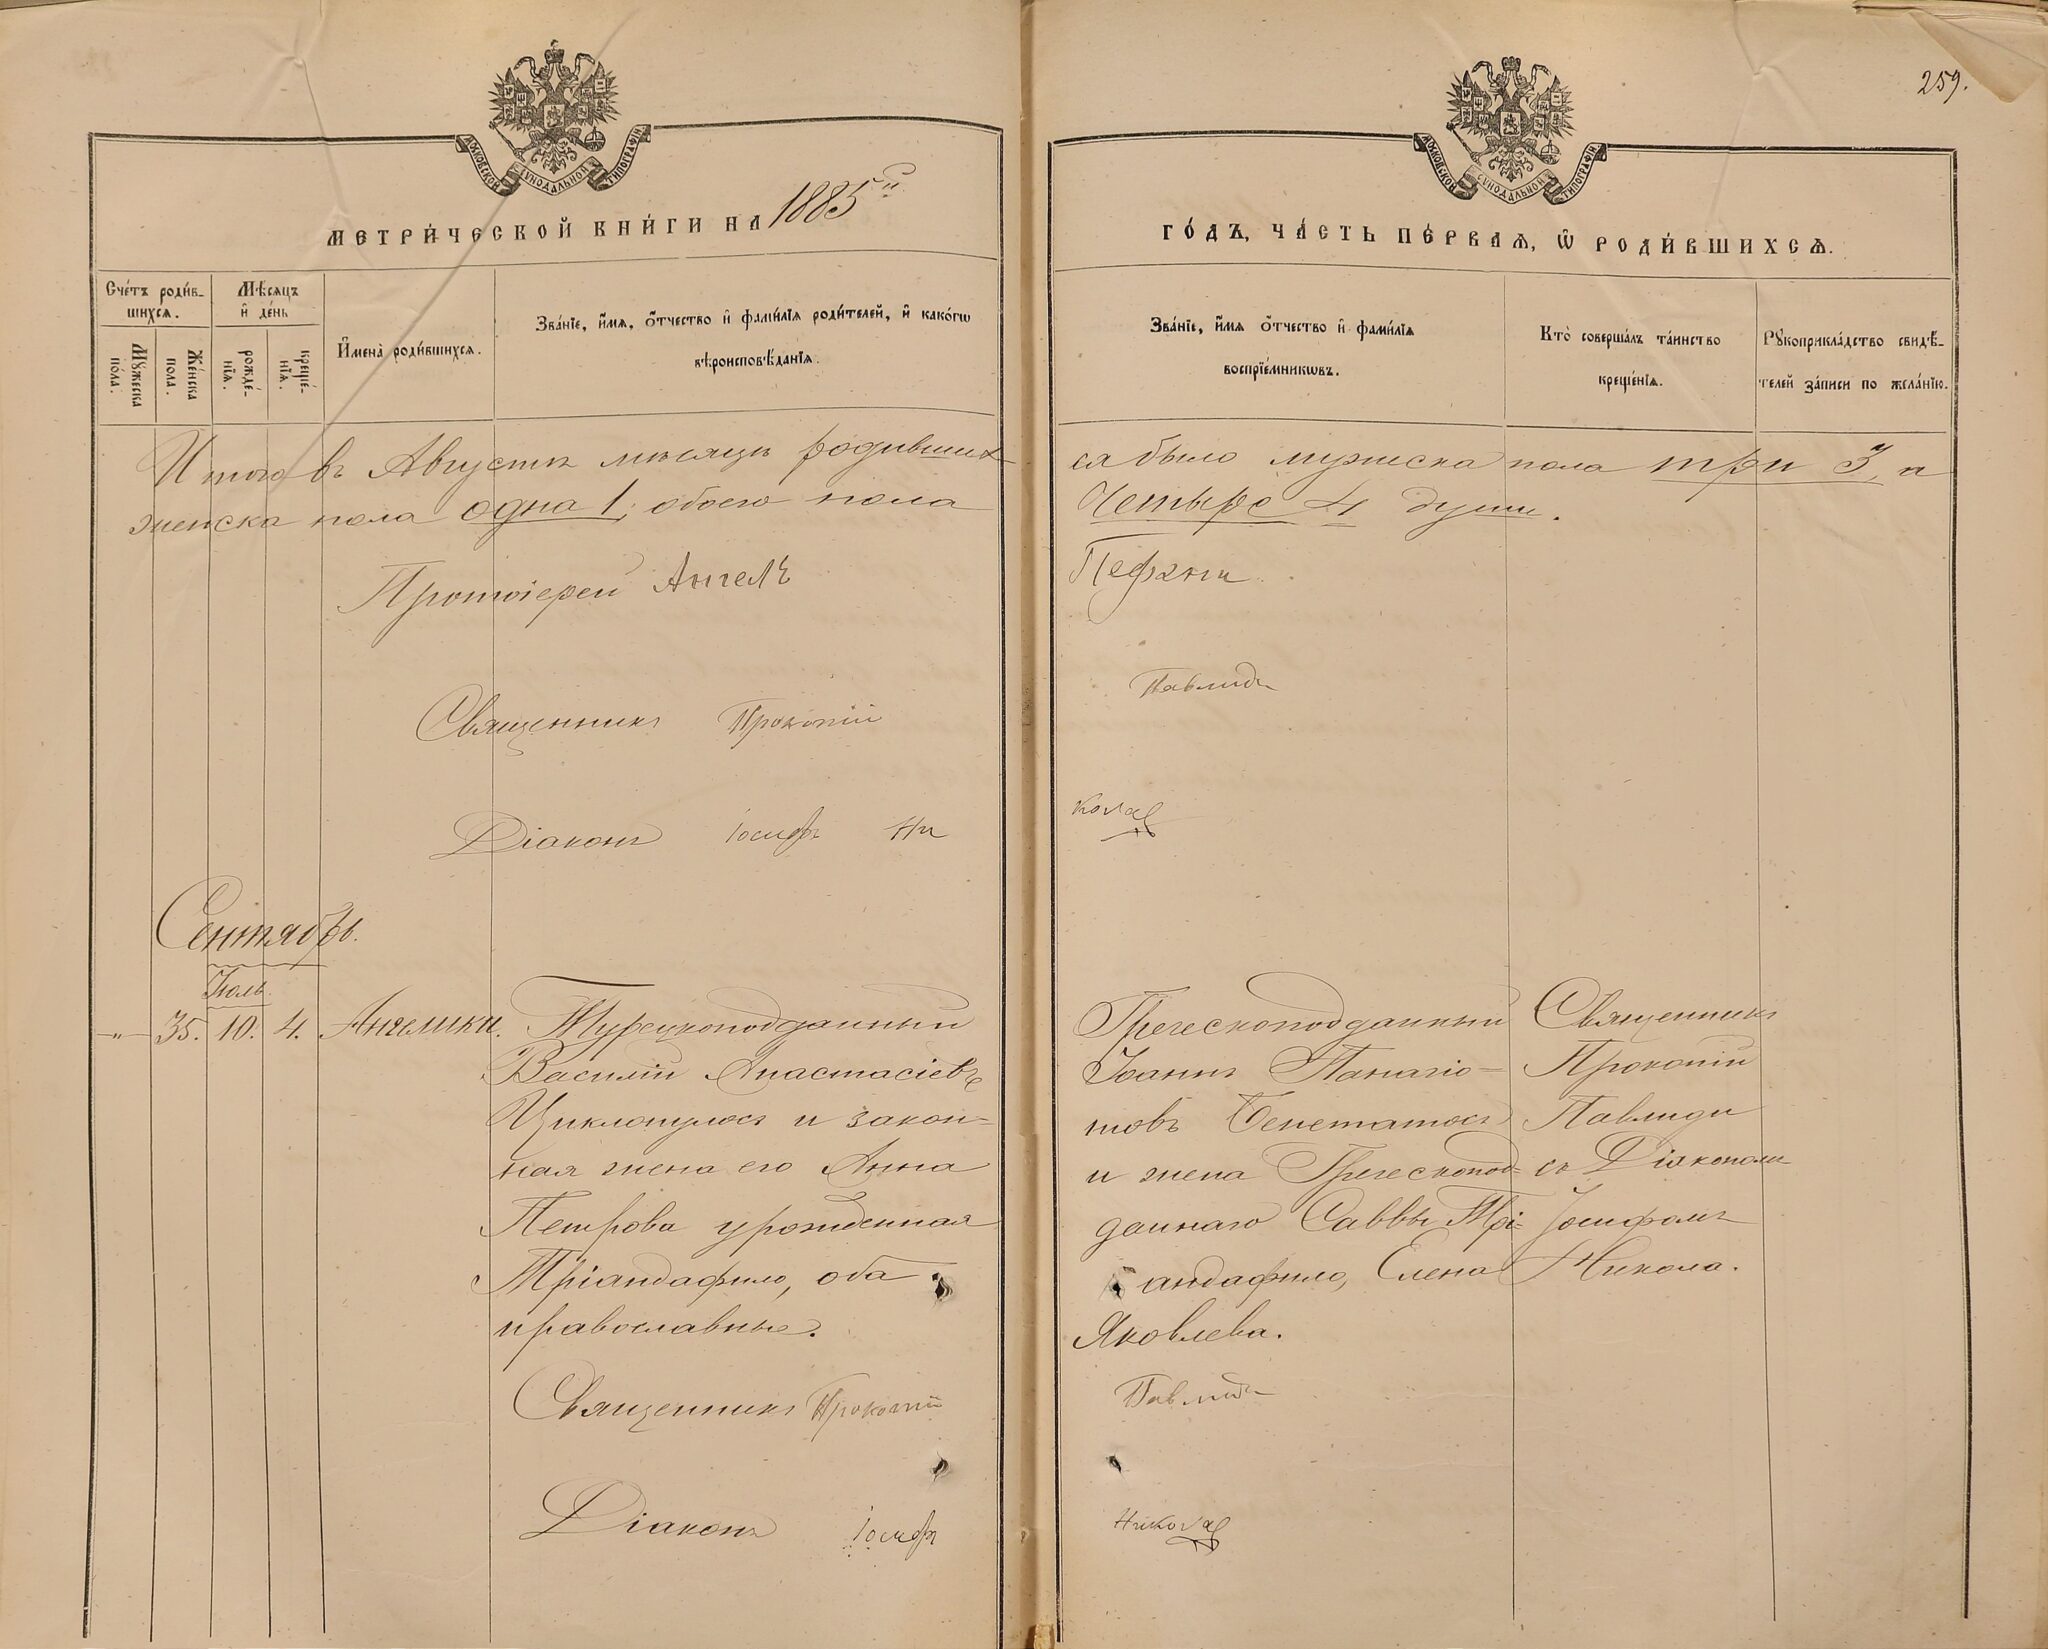 259.
МОСКОВСКОЙ СѴНОДАЛЬНОЙ ТИПОГРАФІИ
МОСКОВСКОЙ СѴНОДАЛЬНОЙ ТИПОГРАФІИ
МЕТРИ́ЧЕСКОЙ КНИ́ГИ НА 1885й
ГО́ДЪ, ЧА́СТЬ ПЕ́РВАѦ, Ѡ РОДИ́ВШИХСѦ.
Сче́тъ роди́в-
шихсѧ.
Мꙋжеска пола.
Же́нска пола.
Мѣ́сяцъ
и де́нь
рожде́-
нїѧ.
креще́-
нїѧ.
Имена̀ роди́вшихсѧ.
Зва́нїе, и́мѧ, о́тчество и фами́лїѧ роди́телей, и како́гѡ
вѣроисповѣ́данїѧ.
Зва́нїе, и́мѧ о́тчество и фами́лїѧ
воспрїе́мникѡвъ.
Кто̀ соверша́лъ та́инство
креще́нїѧ.
Рꙋкоприкла́дство свидѣ́-
телей за́писи по жела́нїю.
Итого въ Августѣ мѣсяцѣ родивших
ся было мужеска пола три 3, а
женска пола одна 1; обоего пола
Четыре 4 души.
Протоіерей Ангелъ
Пефани
Священникъ Прокопій
Павлиди
Діаконъ Іосифъ Ни
кола
Сентябрь.
Іюль
" 35. 10. 4. Ангелики.
Турецкоподданный
Василій Анастасіевъ
Циклопулосъ и закон-
ная жена его Анна
Петрова урожденная
Тріандафило, оба
православные.
Греческоподданный
Іоаннъ Панагіо-
товъ Бенетатосъ
и жена Греческопод-
даннаго Саввы Трі-
андафило, Елена
Яковлева.
Священникъ
Прокопій
Павлиди
съ Діакономъ
Іосифомъ
Никола.
Священникъ Прокопій
Павлиди
Діаконъ Іосифъ
Никола